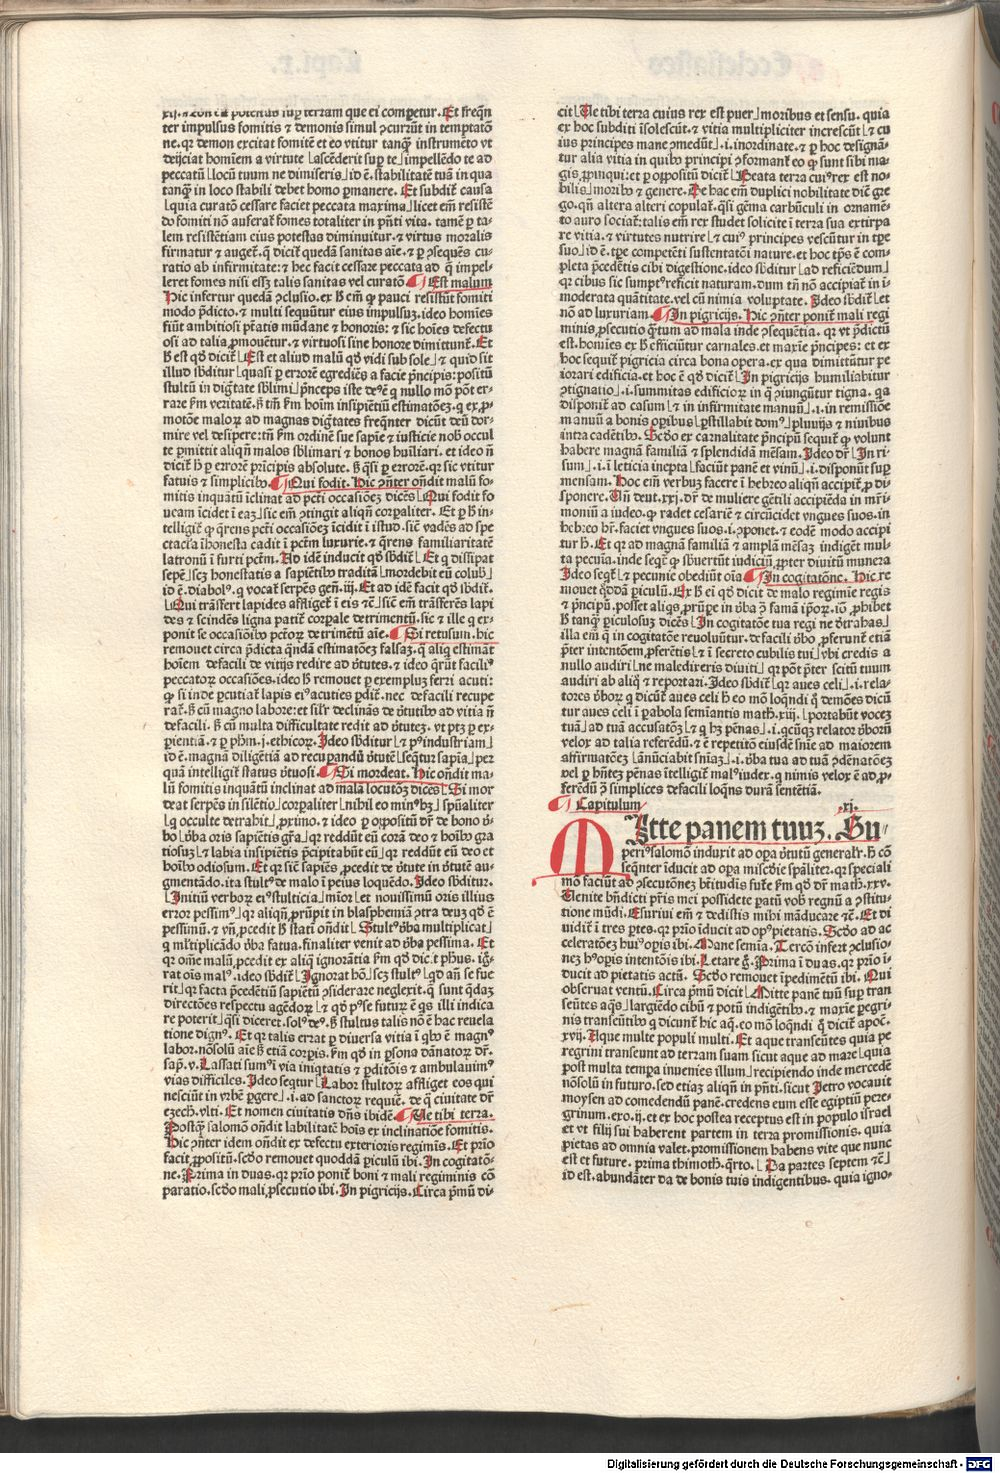 xij. ⁊ Non est potestas sup̱ terram que ei competur. Et freq̄n
ter impulsus fomitis ⁊ demonis simul ꝯcurrūt in temptatō
ne. qꝛ demon excitat fomitē et eo vtitur tanqꝫ instrumēto vt
deijciat homiem a virtute ⌊ascēderit sup̱ te⌋ impellēdo te ad
peccatū ⌊locū tuum ne dimiseris⌋ id ē. stabilitatē tuā in qua
tanqꝫ in loco stabili debet homo p̱manere. Et subdit̄ causa
⌊quia curatō cessare faciet peccata maxima⌋ licet em̄ resistē
do fomiti nō auferat̄ fomes totaliter in pn̄ti vita. tamē p̱ ta
lem resistētiam eius potestas diminuitur. ⁊ virtus moralis
firmatur ⁊ auget̄. q̄ dicit̄ quedā sanitas aīe. ⁊ p̱ ꝯsequēs cu⸗
ratio ab infirmitate: ⁊ hec facit cessare peccata ad q̄ impel⸗
leret fomes nisi ess̄ talis sanitas vel curatō ¶ Est malum
Hic infertur quedā ꝯclusio. ex H̄ em̄ ꝙ pauci resistūt fomiti
modo p̄dicto. ⁊ multi sequūtur eius impulsuꝫ. ideo homies
fiūt ambitiosi pr̄atis mūdane ⁊ honoris: ⁊ sic hoīes defectu
osi ad talia ꝓmouētur. ⁊ virtuosi sine honore dimittunt̄. Et
H̄ est qd̄ dicit̄ ⌊Est et aliud malū qd̄ vidi sub sole⌋ ⁊ quid sit
illud sb̄ditur ⌊quasi p̱ errorē egrediēs a facie p̄ncipis: positū
stultū in diḡtate sb̄limi⌋ p̄nceps iste de⁹ ē q̄ nullo mō pōt er⸗
rare ẜm veritatē. sꝫ tm̄ ẜm hoīm insipiētiū estimatōeꝫ. q̄ ex ꝓ
motōe maloꝝ ad magnas diḡtates freq̄nter dicūt deū dor⸗
mire vel desipere: tn̄ ẜm ordinē sue sapīe ⁊ iusticie nob̄ occul
te p̱mittit aliqn̄ malos sb̄limari ⁊ bonos hūiliari. et ideo n̄
dicit̄ H̄ p̱ errorē pr̄icipis absolute. sꝫ q̄si p̱ errorē. qꝛ sic vtitur
fatuis ⁊ simplicib⁹. ¶ Qui fodit. Hic ꝯn̄ter on̄dit malū fo⸗
mitis inquātū īclinat ad pct̄i occasiōeꝫ dicēs ⌊Qui fodit fo
ueam īcidet ī eaꝫ⌋ sic em̄ ꝯtingit aliqn̄ corpaliter. Et p̱ H̄ in⸗
telligit̄ ꝙ q̄rens pct̄i occasiōeꝫ īcidit ī istud. sic̄ vadēs ad spe
ctacl̄a īhonesta cadit ī pct̄m luxurie. ⁊ q̄rens familiaritatē
latronū ī furti pct̄m. Ad idē inducit qd̄ sb̄dit̄ ⌊Et q̄ dissipat
sepē⌋ scꝫ honestatis a sapiētib⁹ traditā ⌊mordebit eū colub̄⌋
id ē. diabol⁹. q̄ vocat̄ serpēs gen̄. iij. Et ad idē facit qd̄ sb̄dit̄.
⌊Qui trāsfert lapides affliget̄ ī eis ⁊c̄⌋ sic̄ em̄ trāsferēs lapi
des ⁊ scindēs ligna patit̄ corp̱ale detrimentū. sic ⁊ ille q̄ ex⸗
ponit se occasiōib⁹ pct̄oꝝ detrimētū aīe. ¶ Si retusum. hic
remouet circa p̄dicta quādā estimatōeꝫ falsaꝫ. q̄ aliq̄ estimāt
hoīem defacili de vitijs redire ad v̄tutes. ⁊ ideo q̄rūt facili⁹
peccatoꝝ occasiōes. ideo H̄ remouet p̱ exempluꝫ ferri acuti:
ꝙ si inde p̱cutiat̄ lapis ei⁹ acuties p̱dit̄. nec defacili recupe
rat̄. sꝫ cū magno labore: et sil̄r declinās de v̄tutib⁹ ad vitia n̄
defacili. sꝫ cū multa difficultate redit ad v̄tuteꝫ. vt ptꝫ p̱ ex⸗
p̱ientiā. ⁊ p̱ ph̄m. j. ethicoꝝ. Ideo sb̄ditur ⌊⁊ p⁹ industriam⌋
id ē. magnā diligētiā ad recup̱andū v̄tutē ⌊seq̄tur sapīa⌋ per
quā intelligit̄ status v̄tuosi. ¶ Si mordeat. Hic on̄dit ma⸗
lū fomitis inquātū inclinat ad mala locutōeꝫ dicēs ⌊Si mor
deat serpēs in silētio⌋ corpaliter ⌊nihil eo min⁹ hꝫ⌋ sp̄ualiter
⌊q̄ occulte detrahit⌋ ꝓximo. ⁊ ideo p̱ oppositū dr̄ de bono v̄⸗
bo ⌊v̄ba oris sapiētis gr̄a⌋ qꝛ reddūt eū corā deo ⁊ hoīb⁹ gra
tiosuꝫ ⌊⁊ labia insipiētis p̄cipitabūt eū⌋ qꝛ reddūt eū deo et
hoīb⁹ odiosum. Et qꝛ sic̄ sapiēs ꝓcedit de v̄tute in v̄tutē au⸗
gmentādo. ita stult⁹ de malo ī peius loquēdo. Ideo sb̄ditur.
⌊Initiū verboꝝ ei⁹ stulticia⌋ maīor ⌊et nouissimū oris illius
error pessim⁹⌋ qꝛ aliqn̄ ꝓrūpit in blasphemiā ꝯtra deuꝫ qd̄ ē
pessimū. ⁊ vn̄ ꝓcedit H̄ statī on̄dit ⌊Stult⁹ v̄ba multiplicat⌋
q̄ ml̄tiplicādo v̄ba fatua. finaliter venit ad v̄ba pessima. Et
qꝛ om̄e malū ꝓcedit ex aliq̄ ignorātia ẜm qd̄ dic̄t ph̄us. ig̅⸗
rat oīs mal⁹. ideo sb̄dit̄ ⌊Ignorat hō⌋ scꝫ stult⁹ ⌊qd an̄ se fue
rit⌋ qꝛ facta p̄cedētiū sapiētū ꝯsiderare neglexit. q̄ sunt q̄daꝫ
directōes respectu agēdoꝝ ⌊⁊ qd̄ p⁹ se futuꝝ ē q̄s illi indica
re poterit⌋ q̄si diceret. sol⁹ de⁹. sꝫ stultus talis nō ē hac reuela
tione dign⁹. Et qꝛ talis errat p̱ diuersa vitia ī qb⁹ ē magn⁹
labor. nōsolū aīe sꝫ etiā corp̱is. ẜm qd̄ in p̱sona dānatoꝝ dr̄.
sap̄. v. Lassati sum⁹ ī via iniq̄tatis ⁊ p̱ditōis ⁊ ambulauim⁹
vias difficiles. Ideo seq̄tur ⌊Labor stultoꝝ affliget eos qui
nesciūt in vrbē p̱gere⌋. i. ad sanctoꝝ requiē. de q̄ ciuitate dr̄
ezech̄. vlti. Et nomen ciuitatis dn̄s ibidē. ¶ Ue tibi terra.
Postqꝫ salomō on̄dit labilitatē hoīs ex inclinatōe fomitis.
Hic ꝯn̄ter idem on̄dit ex defectu exterioris regimīs. Et prīo
facit ꝓpositū. scd̄o remouet quoddā piculū ibi. In cogitatō⸗
ne. Prima in duas. qꝛ prīo ponit̄ boni ⁊ mali regiminis cō
paratio. scd̄o mali ꝓsecutio ibi. In pigricijs. Circa p̄mū di⸗
cit ⌊Ue tibi terra cuius rex est puer⌋ moribus et sensu. quia
ex hoc subditi īsolescūt. ⁊ vitia multipliciter increscūt ⌊⁊ cu
ius principes mane ꝯmedūt⌋. i. inordinate. ⁊ p̱ hoc designā⸗
tur alia vitia in quib⁹ principi ꝯformant̄ eo ꝙ sunt sibi ma⸗
gis ꝓpinqui: et p̱ oppositū dicit̄ ⌊Beata terra cui⁹ rex est no⸗
bilis⌋ morib⁹ ⁊ genere. De hac em̄ duplici nobilitate dic̄ gre
go. qn̄ altera alteri copulat̄. q̄si gēma carbūculi in ornamē⸗
to auro sociat̄: talis em̄ rex studet solicite ī terra sua extirpa
re vitia. ⁊ virtutes nutrire ⌊⁊ cui⁹ principes vescūtur in tp̄e
suo⌋ id ē. tp̄e competēti sustentatōi nature. et hoc tp̄s ē com⸗
pleta p̄cedētis cibi digestione. ideo sb̄ditur ⌊ad reficiēdum⌋
qꝛ cibus sic sumpt⁹ reficit naturam. dum tn̄ nō accipiat̄ in i⸗
moderata quātitate. vel cū nimia voluptate. Ideo sb̄dit̄ ⌊et
nō ad luxuriam. ¶ In pigricijs. Hic ꝯn̄ter ponit̄ mali regi
minis ꝓsecutio q̄tum ad mala inde ꝯsequētia. qꝛ vt p̄dictū
est. homīes ex H̄ efficiūtur carnales. et maxīe p̄ncipes: et ex
hoc sequit̄ pigricia circa bona opera. ex qua dimittūtur pe
iorari edificia. et hoc ē qd̄ dicit̄ ⌊In pigricijs humiliabitur
ꝯtignatio⌋. i. summitas edificioꝝ in q̄ ꝯiungūtur tigna. qꝛ
disponit̄ ad casum ⌊⁊ in infirmitate manuū⌋. i. in remissiōe
manuū a bonis op̱ibus ⌊p̱stillabit dom⁹⌋ pluuijs ⁊ niuibus
intra cadētib⁹. Scd̄o ex carnalitate p̄ncipū sequit̄ ꝙ volunt
habere magnā familiā ⁊ splendidā mēsam. Ideo dr̄ ⌊In ri⸗
sum⌋. i. ī leticia inepta ⌊faciūt panē et vinū⌋. i. disponūt sup̱
mensam. Hoc em̄ verbuꝫ facere ī hebreo aliqn̄ accipit̄ ꝓ di⸗
sponere. Un̄ deut. xxj. dr̄ de muliere gētili accipiēda in mr̄i⸗
moniū a iudeo. ꝙ radet cesariē ⁊ circūcidet vngues suos. in
hebreo hr̄. faciet vngues suos. i. ꝯponet. ⁊ eodē modo accipi
tur H̄. Et qꝛ ad magnā familiā ⁊ amplā mēsaꝫ indiget̄ mul⸗
ta pecuīa. inde seqt̄ ꝙ sb̄uertūt iudiciū ꝓpter diuitū munera
Ideo seqt̄ ⌊⁊ pecunie obediūt oīa ¶ In cogitatōne. Hic re
mouet q̄ddā piculū. Ex H̄ ei qd̄ dicit de malo regimie regis
⁊ p̄ncipū ꝓsset aliq̄s ꝓrūpe in v̄ba ꝯ famā ip̄oꝝ. iō ꝓhibet
H̄ tanqꝫ p̱iculosuꝫ dicēs ⌊In cogitatōe tua regi ne d̄trahas⌋
illa em̄ q̄ in cogitatōe reuoluūtur. defacili v̄bo ꝓferunt̄ etiā
p̄ter intentōem ꝓferētis ⌊⁊ ī secreto cubilis tui⌋ vbi credis a
nullo audiri ⌊ne maledixeris diuiti⌋ qꝛ pōt p̄ter scitū tuum
audiri ab aliq̄ ⁊ reportari. Ideo sb̄dit̄ ⌊qꝛ aues celi⌋. i. rela⸗
tores v̄boꝝ q̄ dicūt̄ aues celi H̄ eo mō loq̄ndi q̄ demōes dicū
tur aues celi ī p̱abola semīantis math̄. xiij. ⌊portabūt voceꝫ
tuā⌋ ad tuā accusatōꝫ ⌊⁊ q̄ hꝫ pēnas⌋. i. qcūqꝫ relator v̄boꝝ
velox ad talia referēdū. ⁊ ē repetitō eiusdē sn̄ie ad maiorem
affirmatōeꝫ ⌊ānūciabit sn̄iaꝫ⌋. i. v̄ba tua ad tuā ꝯdēnatōeꝫ
vel p̱ hn̄teꝫ pēnas ītelligit̄ mal⁹ iudex. q̄ nimis velox ē ad ꝓ⸗
ferēdū ꝯ simplices defacili loq̄ns durā sentētiā.
¶ Capitulum .xj.
MItte panem tuuꝫ. Su⸗
peri⁹ salomō induxit ad op̱a v̄tutū generalr̄. H̄ cō
seq̄nter īducit ad op̱a misc̄die sp̄aliter. qꝛ speciali
mō faciūt ad ꝯsecutōneꝫ btīudīs fut̄e ẜm qd̄ dr̄ math̄. xxv.
Uenite bn̄dicti pr̄is mei possidete paratū vob̄ regnū a ꝯstitu⸗
tione mūdi. Esuriui em̄ ⁊ dedistis mihi māducare ⁊c̄. Et di
uidit̄ ī tres p̱tes. qꝛ prīo īducit ad op⁹ pietatis. Scd̄o ad ac
celeratōeꝫ hui⁹ op̱is ibi. Mane semīa. Tercō infert ꝯclusio⸗
neꝫ h⁹ op̱is intentōis ibi. Letare g̊. Prima ī duas. qꝛ prīo ī⸗
ducit ad pietatis actū. Scd̄o remouet īpedimētū ibi. Qui
obseruat ventū. Circa p̄mū dicit ⌊Mitte panē tuū sup̱ tran
seūtes aq̄s⌋ largiēdo cibū ⁊ potū indigētib⁹. ⁊ maxīe p̱egri⸗
nis transeūtib⁹ q̄ dicunt̄ hic aq̄. eo mō loq̄ndi q̄ dicit̄ apoc̄.
xvij. Aque multe populi multi. Et aque transeūtes quia pe
regrini transeunt ad terram suam sicut aque ad mare ⌊quia
post multa temp̱a inuenies illum⌋ recipiendo inde mercedē
nōsolū in futuro. sed etiaꝫ aliqn̄ in pn̄ti. sicut Jetro vocauit
moysen ad comedendū panē. credens eum esse egiptiū pere⸗
grinum. exo. ij. et ex hoc postea receptus est in populo israel
et vt filij sui haberent partem in terra promissionis. quia
pietas ad omnia valet. promissionem habens vite que nunc
est et future. prima thimoth̄. q̄rto. ⌊Da partes septem ⁊c̄⌋
id est. abundāter da de bonis tuis indigentibus. quia igno⸗
Digitalisierung gefördert durch die Deutsche Forschungsgemeinschaft - DFG